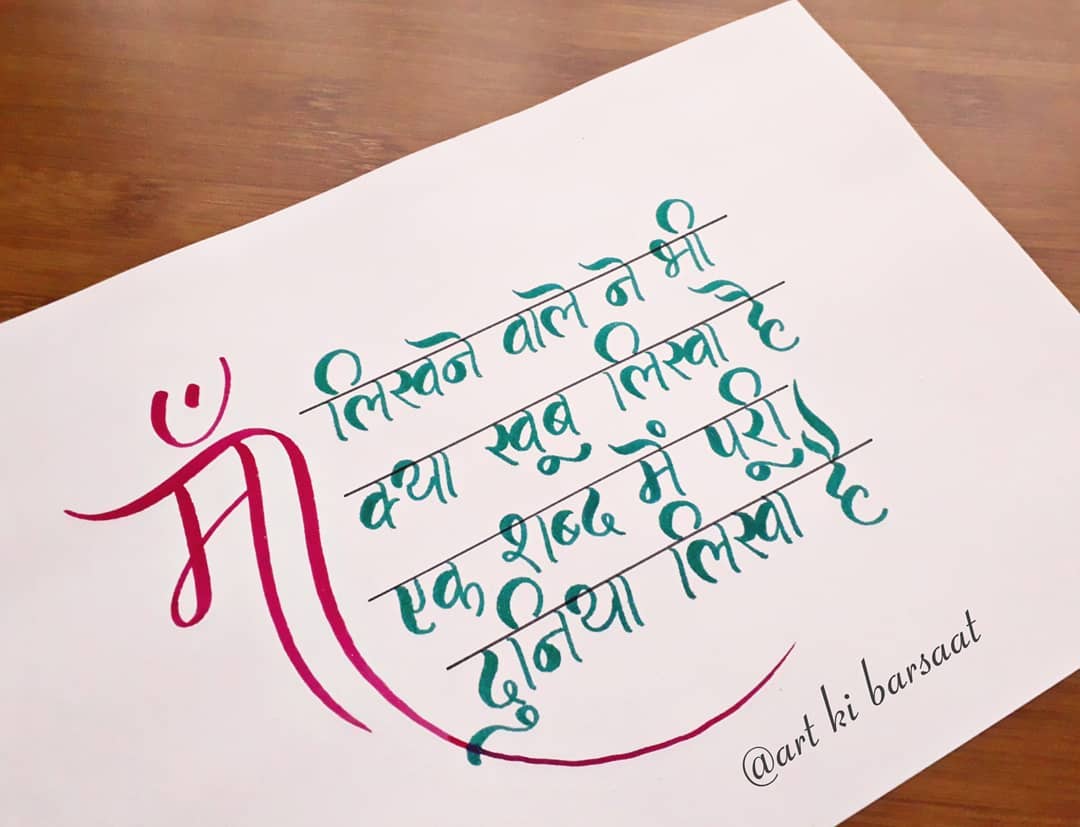 माँ
लिखने वाले ने भी
क्या खूब लिखा है
एक शब्द में पूरी
दुनिया लिखा है
@art ki barsaat